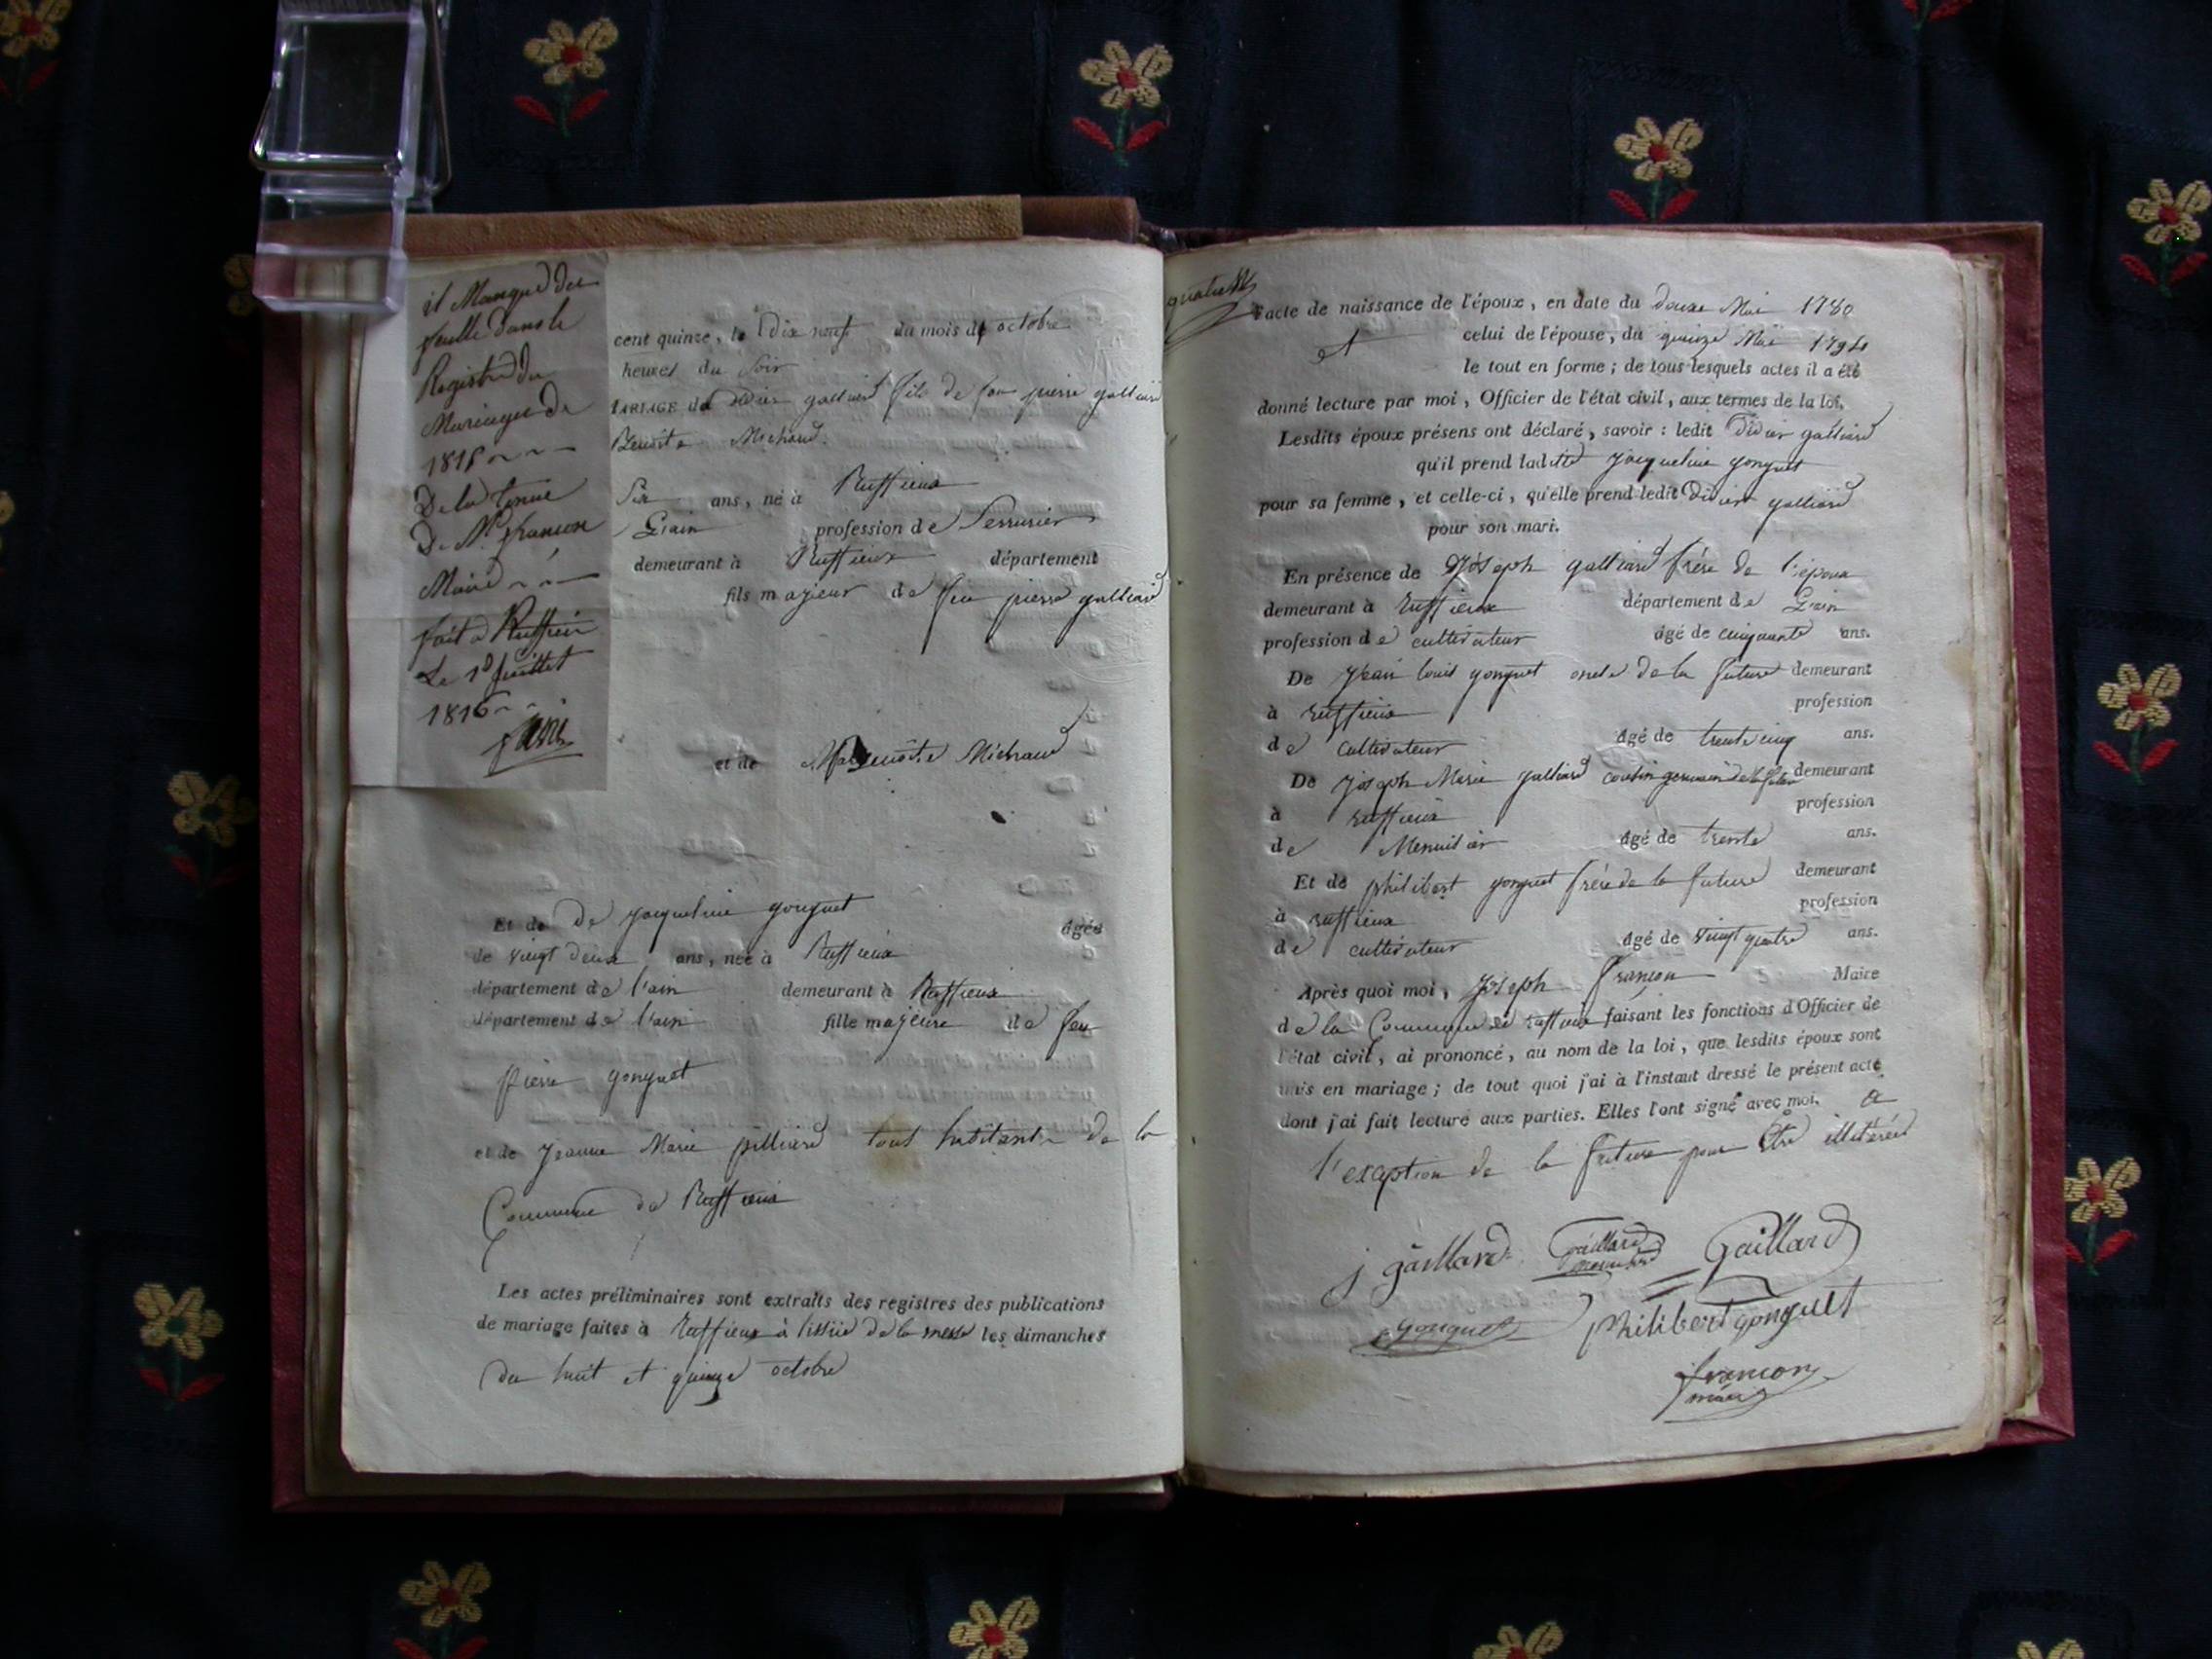 il Manque des
feuille dans le
Registre du
Mariages de
181
De la tenue
De Mr. françon
Maire
fait a Ruffieu
Le 1d juillet
1816
cent quinze, le Dix neuf du mois de octobre
heures du Soir
MARIAGE de Didier galliard fils de feu pierre galliard
Benoîte Michaud.
Six ans, né à Ruffieux
L'ain profession de Serrurier
demeurant à Ruffieux département
fils majeur de feu pierre galliard
et de Benoîte Michaud
Et de De jacqueline gonguet âgée
de vingt deux ans, née à Ruffieux
département de l'ain demeurant à Ruffieux
département de l'ain fille majeure de feu
Pierre gonguet
et de jeanne Marie pilliard tous habitants de la
Commune de Ruffieux
Les actes préliminaires sont extraits des registres des publications
de mariage faites à Ruffieux à l'issüe de la messe les dimanches
du huit et quinze octobre
l'acte de naissance de l'époux, en date du douze Mai 1780
et celui de l'épouse, du quinze Mai 1794
le tout en forme ; de tous lesquels actes il a été
donné lecture par moi, Officier de l'état civil, aux termes de la loi,
Lesdits époux présens ont déclaré, savoir : ledit Didier galliard
qu'il prend ladite jacqueline gonguet
pour sa femme, et celle-ci, qu'elle prend ledit Didier galliard
pour son mari.
En présence de Joseph galliard frère de l'époux
demeurant à ruffieux département de L'ain
profession de cultivateur âgé de cinquante ans.
De jean louis gonguet oncle de la future demeurant
à ruffieux profession
de cultivateur âgé de trente cinq ans.
De joseph Marie galliard cousin germain de la future demeurant
à ruffieux profession
de Menuisier âgé de trente ans.
Et de philibert gonguet frère de la future demeurant
à ruffieux profession
de cultivateur âgé de vingt quatre ans.
Après quoi moi, joseph françon Maire
de la Commune de ruffieux faisant les fonctions d'Officier de
l'état civil, ai prononcé, au nom de la loi, que lesdits époux sont
unis en mariage ; de tout quoi j'ai à l'instant dressé le présent acte
dont j'ai fait lecture aux parties. Elles l'ont signé avec moi. a
l'exeption de la future pour être illitérée
j gaillard Gaillard Gaillard
gonguet philibert gonguet
françon
maire